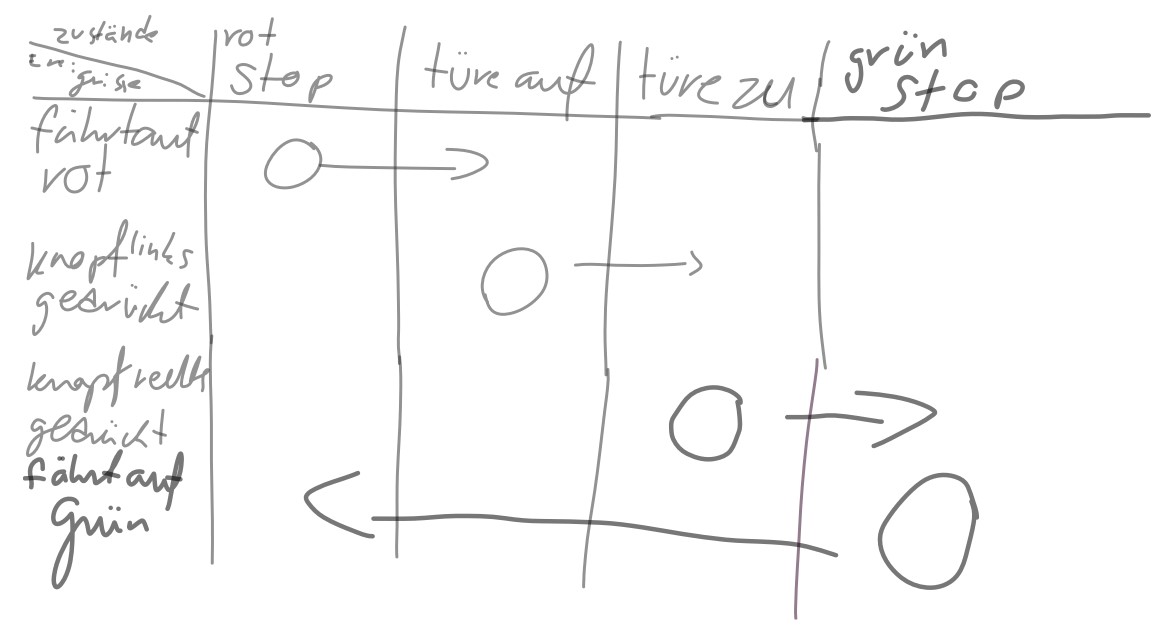 zustände
Erei
gnisse
rot
Stop
türe auf
türe zu
grün
Stop
fährt auf
rot
knopf links
gedrückt
knopf rechts
gedrückt
fährt auf
Grün